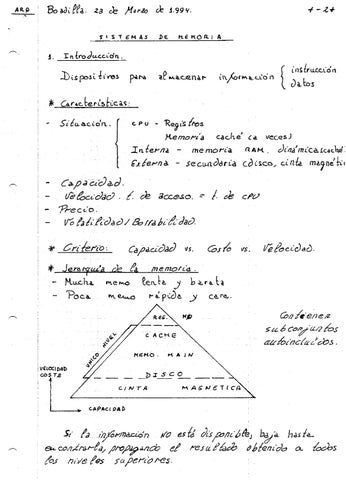 ARD Boadilla. 23 de Marzo de 1.994. 1-24
SISTEMAS DE MEMORIA
1. Introducción.
Dispositivos para almacenar información { instrucción
datos
* Características:
- Situación. { CPU - Registros
Memoria caché (a veces)
Interna - memoria RAM. dinámica (caché)
Externa - secundaria (disco, cinta magnétic
- Capacidad.
- Velocidad. t. de acceso. = t. de CPU
- Precio.
- Volatilidad / Borrabilidad.
* Criterio: Capacidad vs. Costo vs. Velocidad.
* Jerarquía de la memoria.
- Mucha memo lenta y barata
- Poca memo rápida y cara.
REG.
CACHE
MEMO. MAIN
DISCO
CINTA MAGNETICA
UNICO NIVEL
VELOCIDAD
COSTE
CAPACIDAD
Contienen
subconjuntos
autoincluidos.
Si la información no está disponible, baja hasta
encontrarla, propagando el resultado obtenido a todos
los niveles superiores.